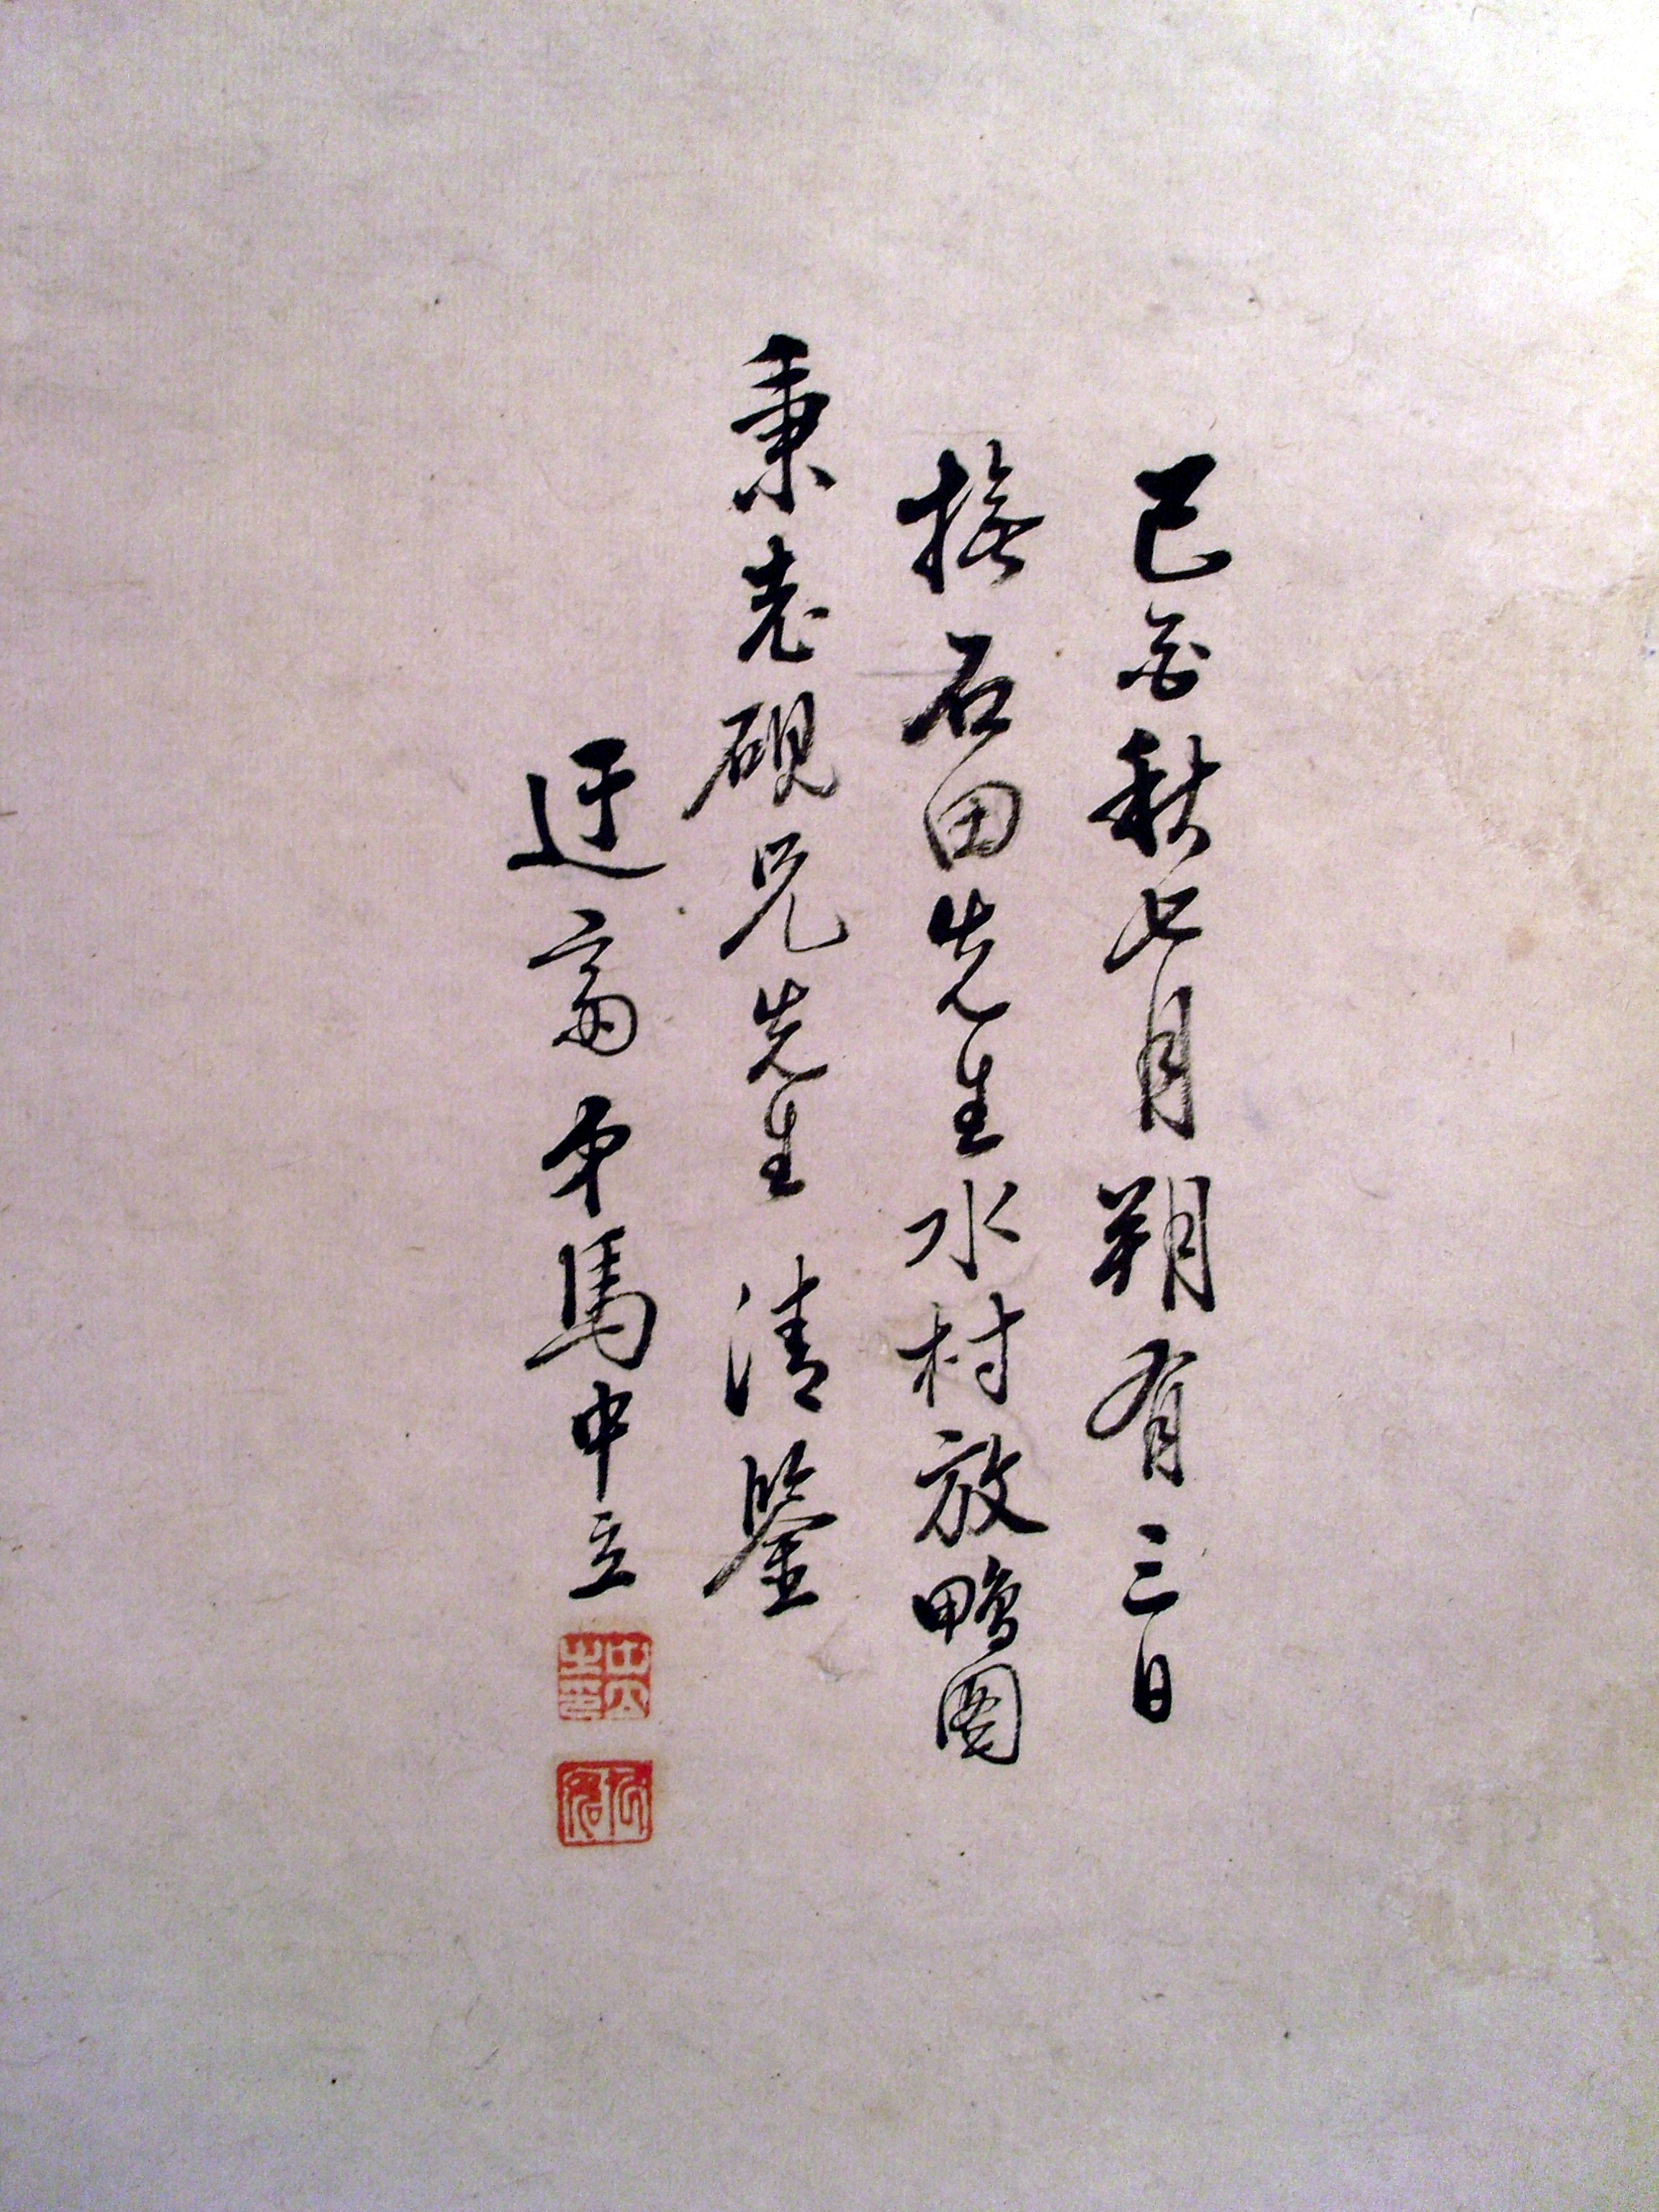 己酉秋七月朔有三日
橅石田先生水村放鴨圖
秉老硯兄先生清鑒
迂齋弟馬中立